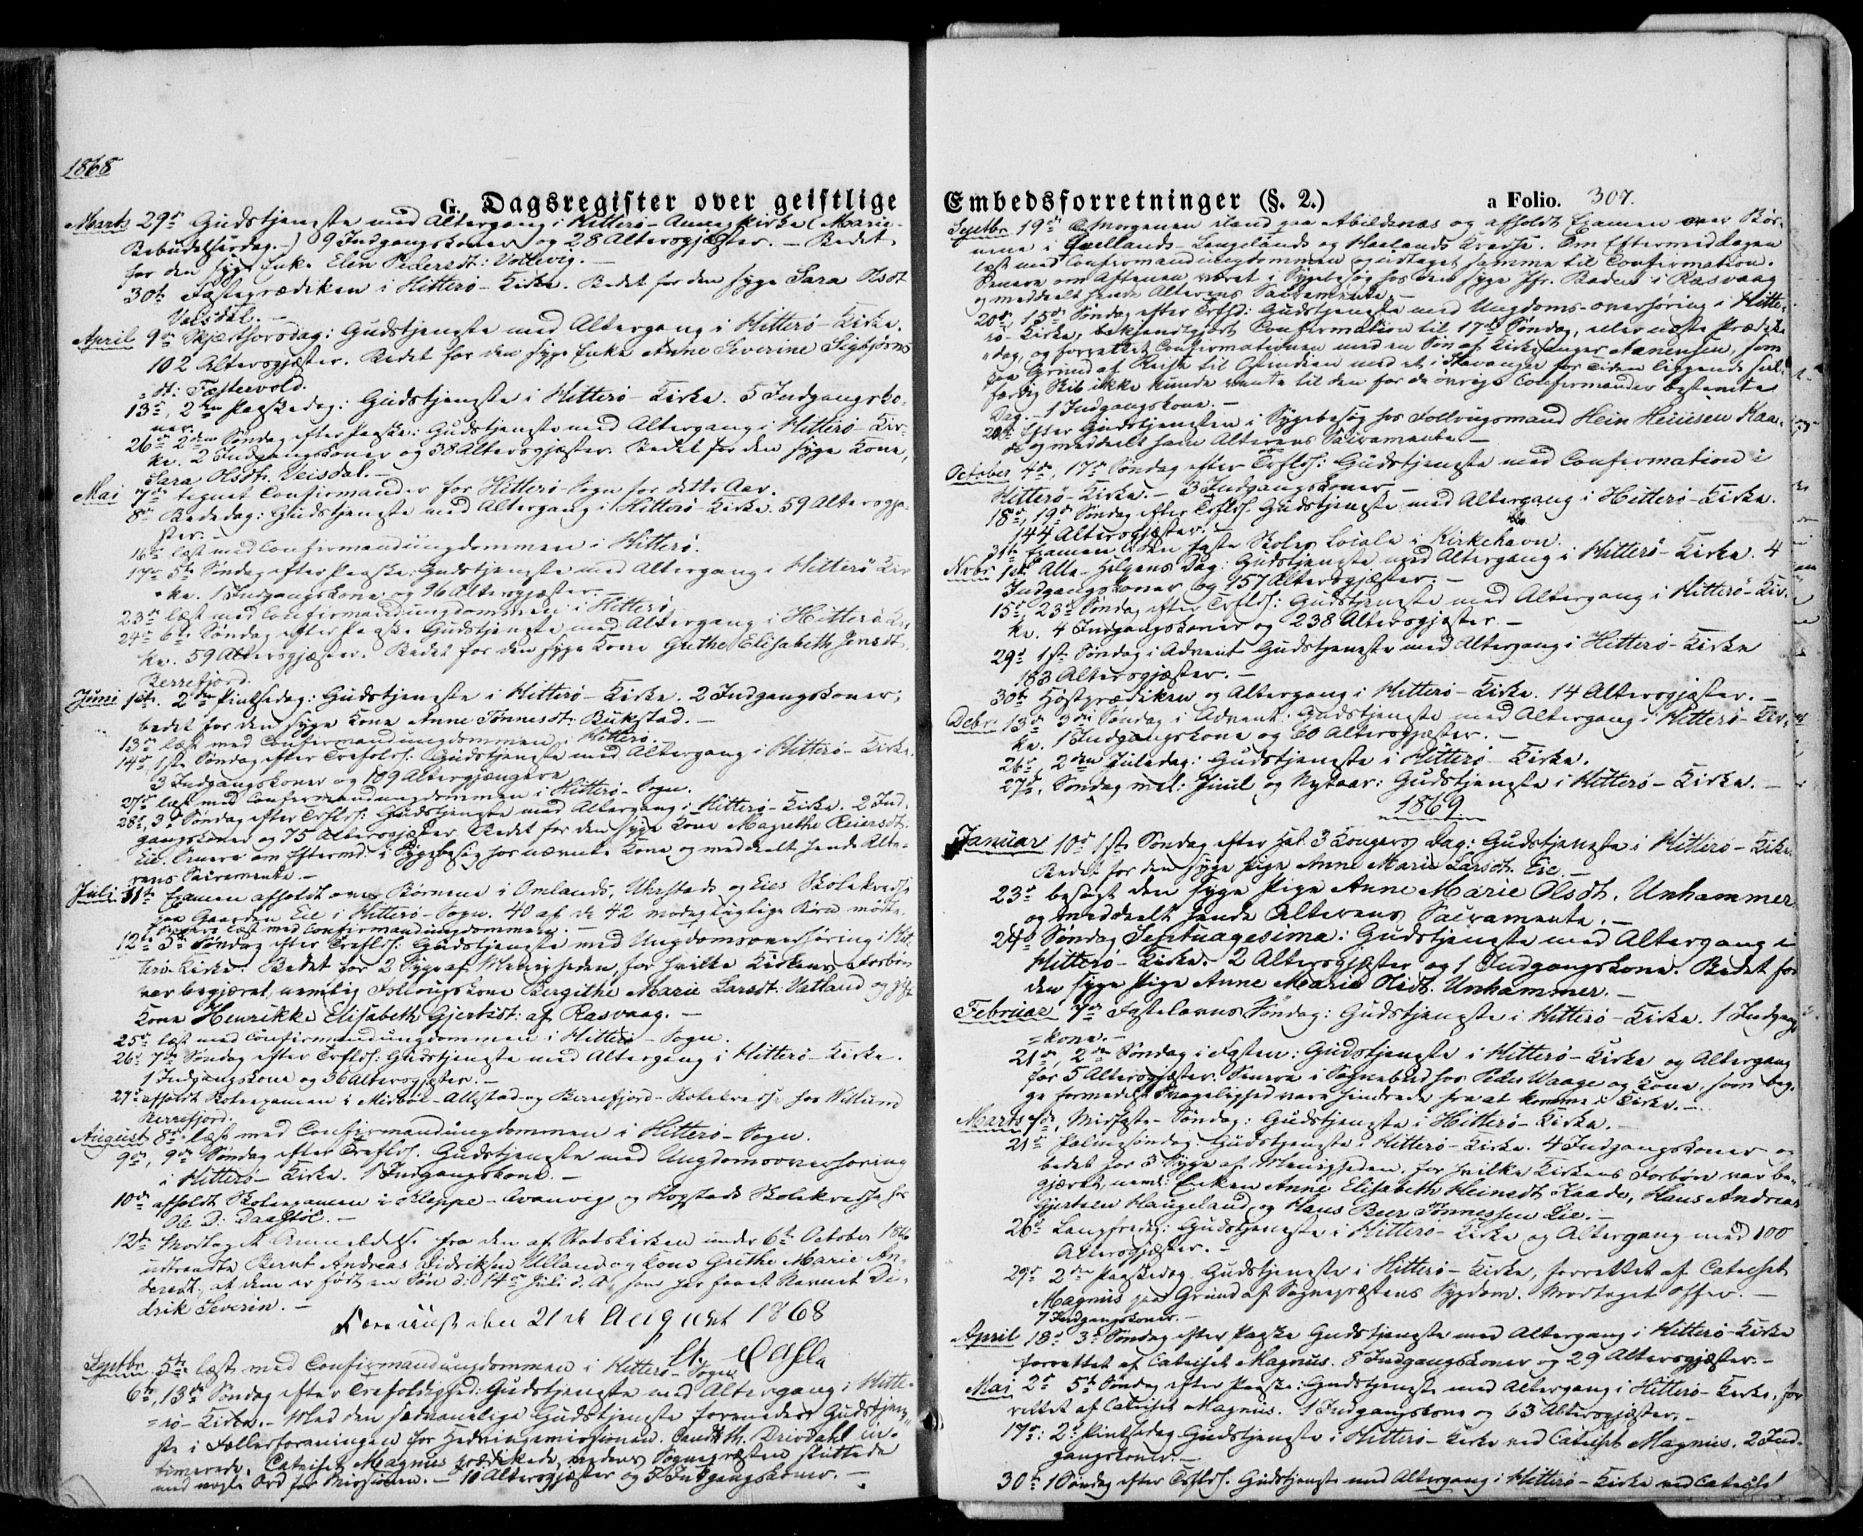 1868
G. Dagsregister over geistlige
Marts 29de Gudstjeneste med Altergang i Hitterø-Annexkirke (Mariæ-
Bebudelsesdag-) 9 Indgangskoner og 28 Altersgjæster. - Bedet
for den syge Enke Elen Pedersdt: Vollevig. -
30te Fasteprædiken i Hitterø-Kirke. Bedet for den syge Sara Olsdt
Veisdal. -
April 9de Skjærthorsdag: Gudstjeneste med Altergang i Hitterø-Kirke.
102 Altersgjæster. Bedet for den syge Enke Anne Severine Sigbjørns-
dt: Fastevold.
13de, 2den Paaskedag: Gudstjeneste i Hitterø-Kirke. 5 Indgangsko-
ner.
26de 2den Søndag efter Paaske: Gudstjeneste med Altergang i Hitterø-Kir-
ke. 2 Indgangskoner og 38 Altersgjæster. Bedet for den syge Kone,
Sara Olsdt. Veisdal. -
Mai 7de tegnet Confirmander for Hitterø-Sogn for dette Aar.
8de Bededag: Gudstjeneste med Altergang i Hitterø-Kirke. 59 Altersgjæ-
ster. -
16de læst med Confirmandungdommen i Hitterø.
17de 5te Søndag efter Paaske: Gudstjeneste med Altergang i Hitterø Kir-
ke. 1 Indgangskone og 96 Altersgjæster.
23de læst med Confirmandungdommen i Hitterø.
24de 6te Søndag efter Paaske Gudstjeneste med Altergang i Hitterø-Kir-
ke. 59 Altersgjæster. Bedet for den syge Kone Grethe Elisabeth Jensdt.
Berrefjord.
Juni 1ste. 2den Pintsedag: Gudstjeneste i Hitterø-Kirke. 2 Indgangskoner;
bedet for den syge Kone Anne Tønnesdt. Birkestad. -
13de læst med Confirmandungdommen i Hitterø.
14de, 1ste Søndag efter Trefoldsh: Gudstjeneste med Altergang i Hitterø-Kirke.
3 Indgangskoner og 109 Altergjængere
27de læst med Confirmandungdommen i Hitterø-Sogn.
28de, 3de Søndag efter Trflds: Gudstjeneste med Altergang i Hitterø-Kirke. 2 Ind-
gangskoner og 75 Altersgjæster. Bedet for den syge Kone Magrethe Reiersdt.
Eie. Senere om Eftermd. i Sygebesøg hos nævnte Kone og meddeelt hende Alte-
rens Sacramente. -
Juli 11te Examen afholdt over Børnene i Omlands, Ulvestads og Eies Skolekredse
paa Gaarden Eie i Hitterø-Sogn. 40 af de 42 modtagelige Børn mødte.
Senere læst med Confirmandungdommen. -
12te 5te Søndag efter Trefldsh. Gudstjeneste med Ungdomsoverhøring i Hit-
terø-Kirke. Bedet for 2 Syge af Menigheden, for hvilke Kirkens Forbøn
var begjæret, nemlig Føllougskone Bergithe Marie Larsdt. Vatland og gift
Kone Henrikke Elisabeth Gjertsdt: af Rasvaag. -
25de læst med Confirmandungdommen i Hitterø-Sogn.
26de 7de Søndag efter Trflds: Gudstjeneste med Altergang i Hitterø-Kirke.
1 Indgangskone og 36 Altersgjæster. -
27de afholdt Skoleexamen i Midbøe-Allestad og Berrefjord-Skolekreds hos Villum
Berrefjord.
August 8de læst med Confirmandungdommen i Hitterø-Sogn.
9de, 9de Søndag efter Trefldsh. Gudstjeneste med Ungdomsoverhøring
i Hitterø-Kirke. 1 Indgangskone. -
10de afholdt Skoleexamen i Kleppe-Svanevig og Rogstads Skolekredse hos
Ole D: Daastøl. -
12te Modtaget Anmeldelse fra den af Statskirken under 6te October 18
udtraadte Bernt Andreas Didriksen Ulland og Kone Grethe Marie An-
dersdt. at dem er født en Søn d: 14de Juli d. A., som har faaet Navnet Di-
drik Severin. -
den 21de August 1868
Septbr. 5te læst med Confirmandungdommen i Hitterø-Sogn.
6te, 13de Søndag efter Trefoldighed: Gudstjeneste med Altergang i Hitte-
rø-Kirke. - Med den sædvanlige Gudstjeneste forenedes Gudstjene-
ste i Fællesforeningen for Hedningemissionen. Candt. th. Drivdahl in-
timerede, Catechet Magnus prædikede, medens Sognepræsten sluttede
med nogle Ord for Missionen. - 10 Altersgjæster og 5 Indgangskoner. -
Embedsforretninger (§. 2.)
a Folio. 307.
Septbr. 19de Morgenen iland paa Abildsnæs og afholdt Examen over Bør-
nene i Qvellands-Lengelands og Haalands Kredse. Om Eftermiddagen
læst med Confirmandungdommen og udtaget samme til Confirmation.
Senere om Aftenen været i Sygebesøg hos den syge Jfr. Bades i Rasvaag
og meddeelt hende Alterens Sacramente. -
20de, 15de Søndag efter Trflsd: Gudstjeneste med Ungdoms-overhøring i Hitte-
rø-Kirke, bekjendtgjort Confirmation til 17de Søndag, eller næste Prædike-
dag, og forrettet Confirmationen med en Søn af Kirkesanger Aanensen, som
paa Grund af Reise til Ostindien med et i Stavanger for Tiden liggende seil-
færdig Skib ikke kunde vente til den for de øvrige Confirmander bestemte
Dag. - 1 Indgangskone. -
20de Efter Gudstjenesten i Sygebesøg hos Follougsmand Hein Heinsen Kaa-
de og meddeelt ham Alterens Sacramente. -
October 4de, 17de Søndag efter Trflds: Gudstjeneste med Confirmation i
Hitterø-Kirke. - 3 Indgangskoner -
18de, 19de Søndag efter Trflds. Gudstjeneste med Altergang i Hitterø-Kirke.
144 Altersgjæster. -
31te Examen i den faste Skoles Locale i Kirkehavn.
Novbr. 1ste Alle-Helgens Dag: Gudstjeneste med Altergang i Hitterø-Kirke. 4
Indgangskoner og 157 Altersgjæster. -
15de, 23de Søndag efter Trflds: Gudstjeneste med Altergang i Hitterø-Kir-
ke. 4 Indgangskoner og 238 Altersgjæster. -
29de 1ste Søndag i Advent Gudstjeneste med Altergang i Hitterø-Kirke
183 Altersgjæster. -
30te Høstprædiken og Altergang i Hitterø-Kirke. 14 Altersgjæster. -
Debr. 13de 3die Søndag i Advent: Gudstjeneste med Altergang i Hitterø-Kir-
ke. 1 Indgangskone og 60 Altersgjæster. -
26de, 2den Juledag: Gudstjeneste i Hitterø-Kirke.
27de, Søndag mel: Juul og Nytaar: Gudstjeneste i Hitterø-Kirke. -
1869
Januar 10de 1ste Søndag efter Hel. 3 Kongers Dag: Gudstjeneste i Hitterø-Kirke
Bedet for den syge Pige Anne Marie Larsdt. Eie. -
23de besøgt den syge Pige Anne Marie Olsdt. Unhammer
og meddeelt hende Alterens Sacramente. -
24de Søndag Septuagesima: Gudstjeneste med Altergang i
Hitterø-Kirke. 2 Altersgjæster og 1 Indgangskone. Bedet for
den syge Pige Anne Marie Olsdt. Unhammer. -
Februar 7de Fastelavns Søndag: Gudstjeneste i Hitterø-Kirke. 1 Indgangs-
kone. -
21de, 2den Søndag i Fasten: Gudstjeneste i Hitterø-Kirke og Altergang
for 5 Altersgjæster. Senere i Sognebud hos Peder Waage og Kone, som beg-
ge formedelst Svagelighed vare hindrede fra at komme i Kirke. -
Marts 7de, Midfaste-Søndag: Gudstjeneste i Hitterø-Kirke. -
21de Palmesøndag: Gudstjeneste i Hitterø-Kirke. 4 Indgangskoner og
bedet for 3 Syge af Menigheden, for hvilke Kirkens Forbøn var be-
gjæret, neml: Enken Anne Elisabeth Heinsdt. Kaade, Hans Andreas
Gjertsen Haugeland og Hans Beer Tønnessen Eie. -
26de Langfredag: Gudstjeneste i Hitterø-Kirke og Altergang med 100
Altersgjæster. -
29de 2den Paaskedag Gudstjeneste i Hitterø-Kirke, forrettet af Catechet
Magnus paa Grund af Sognepræstens Sygdom. Modtaget Offer. -
7 Indgangskoner. -
April 18de 3de Søndag efter Paaske Gudstjeneste med Altergang i Hitterø-Kirke
forrettet af Catechet Magnus. 8 Indgangskoner og 29 Altersgjæster. -
Mai 2de 5te Søndag efter Paaske: Gudstjeneste med Altergang i Hitterø-Kirke, for-
rettet af Catechet Magnus. 1 Indgangskone og 63 Altersgjæster. -
17de: 2den Pintsedag Gudstjeneste i Hitterø-Kirke ved Catechet Magnus. 2 Ind-
gangskoner. -
30te 1 Søndag efter Trflds. Gudstjeneste med Altergang i Hitterø-Kirke ved Catechet